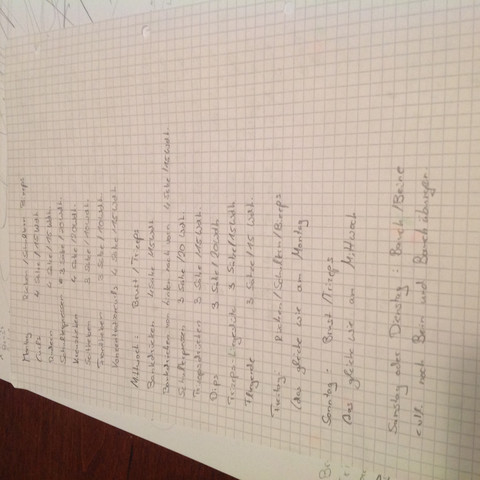 Montag Rücken/Schultern Bizeps
4 Sätze/15 Wdh.
Rudern 4 Sätze/15 Wdh.
Schulterpressen 3 Sätze/20 Wdh.
Kreuzheben 4 Sätze/20 Wdh.
Seitheben 3 Sätze/15 Wdh.
Frontheben 3 Sätze/10 Wdh.
4 Sätze 15 Wdh.
Mittwoch: Brust/Trizeps
Bankdrücken 4 Sätze/15 Wdh.
Bankdrücken von nach 4 Sätze/15 Wdh.
Schulterpressen 3 Sätze/20 Wdh.
Trizepsdrücken 3 Sätze/15 Wdh.
Dips 3 Sätze/20 Wdh.
Trizeps Liegestütz 3 Sätze/15 Wdh.
Fliegende 3 Sätze/15 Wdh.
Freitag: Rücken/Schultern/Bizeps
(das gleiche wie am Montag
Sonntag: Brust/Trizeps
das gleiche wie am Mittwoch
Samstag oder Dienstag: Bauch/Beine
evtl. noch Bein und Bauchübungen